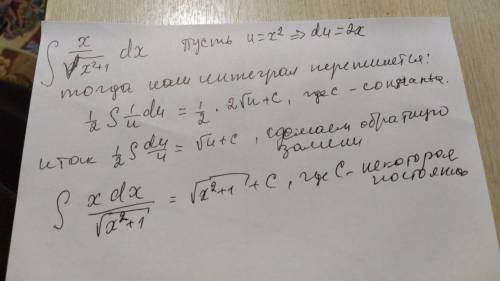 ∫ x/√(x²+1) dx пусть u=x² ⇒ du=2x
тогда наш интеграл перепишется:
1/2 ∫ 1/u du = 1/2 · 2√u + c, где c - константа.
итак 1/2 ∫ du/u = √u + c, сделаем обратную
замену
∫ x dx/√(x²+1) = √(x²+1) + C, где C - некоторая
постоянная